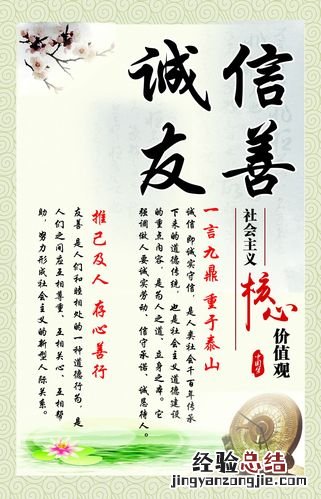 诚信
友善
社会主义
核心
价值观
中国梦
一言九鼎 重于泰山
诚信 即诚实守信，是人类社会千百年传承
下来的道德传统，也是社会主义道德建设
的重点内容，是为人之道、立身之本。它
强调做人要诚实劳动、信守承诺、诚恳待人。
推己及人 存心善行
友善 是人们和睦相处的一种道德行为，是
人们之间应互相尊重、互相关心、互相帮
助，努力形成社会主义的新型人际关系。
经验总结
jingyanzongjie.com